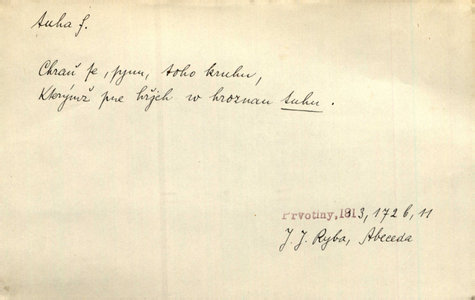 tuha f.
Chraň se, synu, toho kruhu,
Kterýmž pne hřjch w hroznau tuhu.
Prvotiny, 1813, 172 b, 11
J. J. Ryba, Abeceda